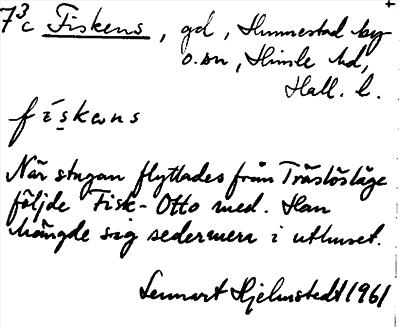 7³c Fiskens, gd, Hunnestad by
o. sn, Himle hd,
Hall. l.
fiskans
När stugan flyttades från Träslöv släge
följde Fisk-Otto med. Han
hängde sig sedermera i uthuset.
Lennart Hjelmstedt 1961